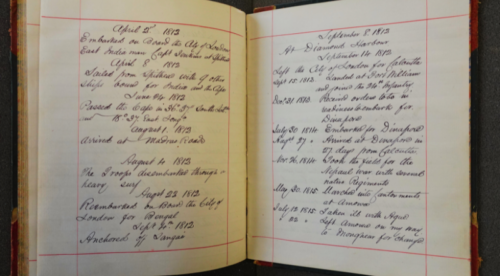 April 5th 1813
Embarked on Board the City of London
East India man Capt Jenkins at Spithead
April 8. 1813
Sailed from Spithead with 9 other
ships bound for India and the Cape
June 24. 1813
Passed the Cape in 36°.37' South Lat
and 18°.37' East
August 1. 1813
arrived at Madras Roads
August 4 1813
The Troops disembarked through a
heavy surf
August 22 1813
Reembarked on Board the City of
London for Bengal
Sept 1813
Anchored off
September 8 1813
At Diamond Harbour
September 14 1813
Left the City of London for Calcutta
Sept 15. 1813 Landed at Fort William
and joined the 24th Infantry
Decr 21. 1813 Received orders to be in
readiness to embark for
Dinapore
July 20. 1814 Embarked for Dinapore
Augt 27. " Arrived at Dinapore in
27 days from Calcutta
Nov 26. 1814 Took the field for the
Nepaul war with several
native Regiments
May 30. 1815 Marched into Cantonments
at
July 12. 1815 Taken ill with Ague
22 " Left on my way
to Monghyr for change